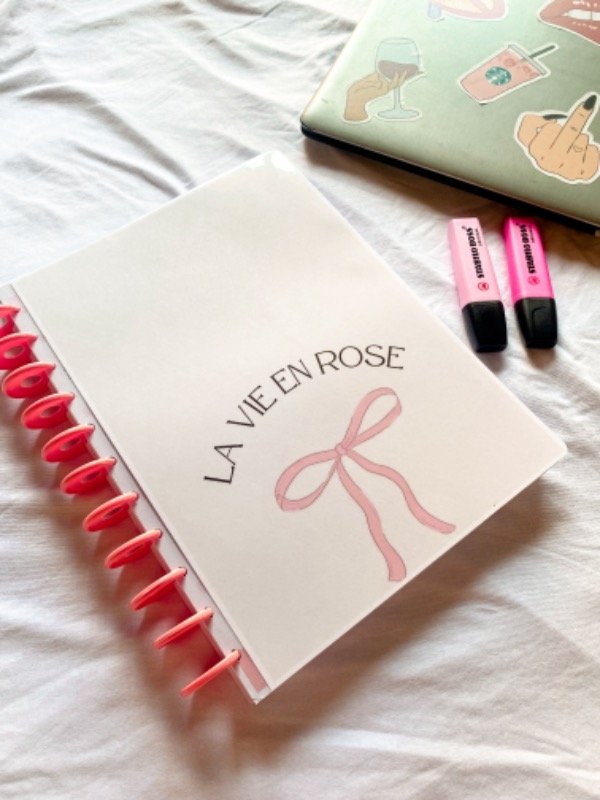 LA VIE EN ROSE
STABILO BOSS
STABILO BOSS